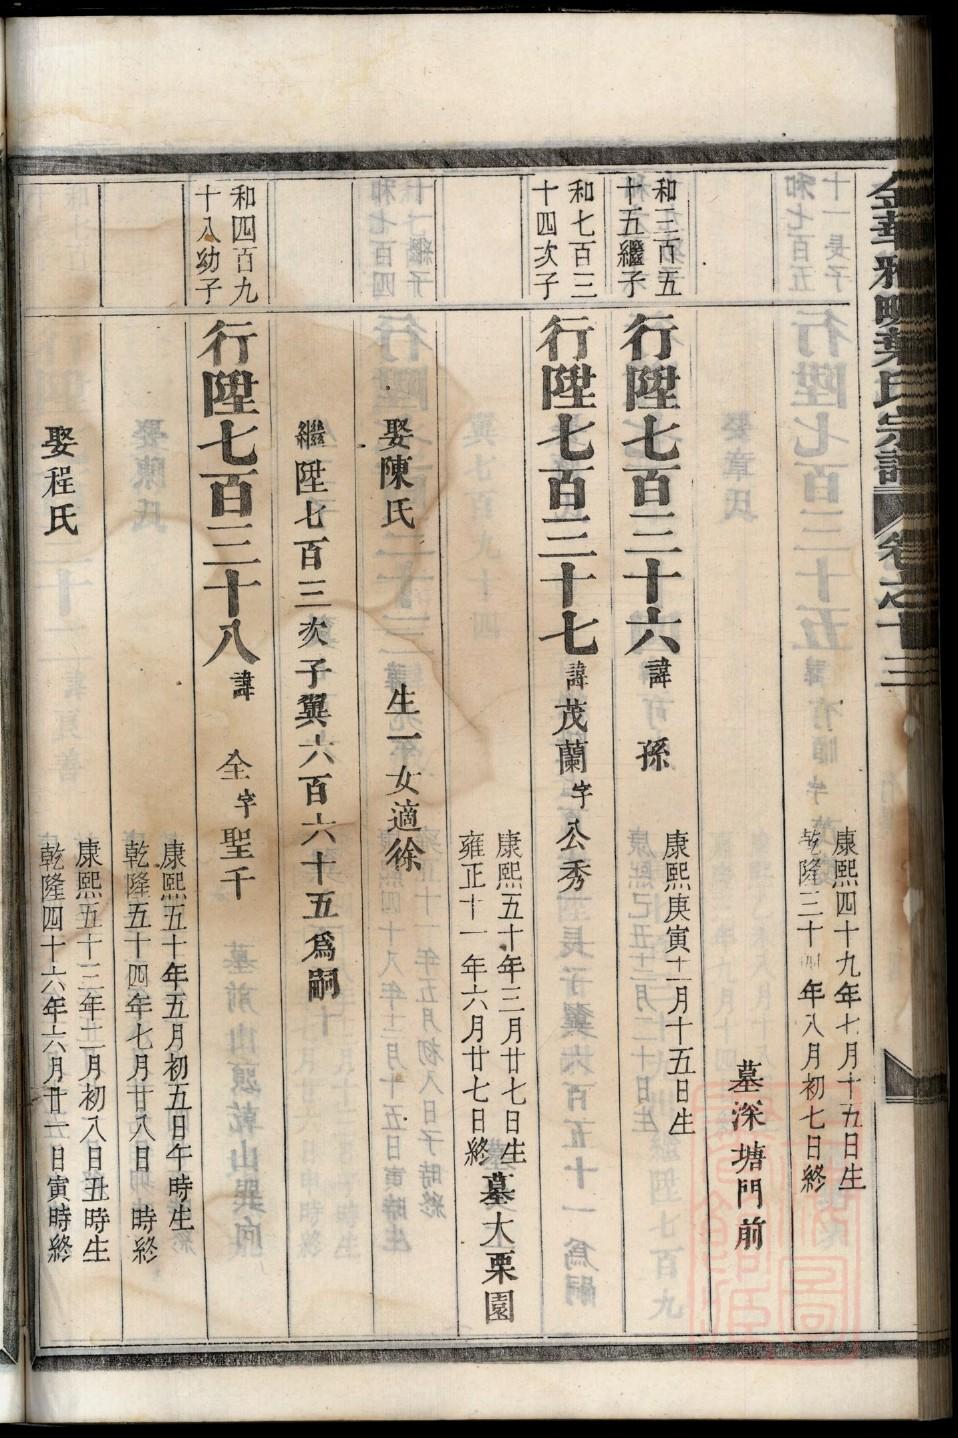 金華雅畈葉氏宗譜 卷之十三
康熙四十九年七月十五日生
乾隆三十四年八月初七日終
墓深塘門前
和三百五
十五繼子
行陞七百三十六 諱 孫
康熙庚寅十二月十五日生
和七百三
十四次子
行陞七百三十七 諱茂蘭字公秀
康熙五十年三月廿七日生
雍正十一年六月廿七日終
墓大栗園
娶陳氏 生一女適徐
繼陞七百三次子翼六百六十五爲嗣
和四百九
十八幼子
行陞七百三十八 諱 全字聖千
康熙五十年五月初五日午時生
乾隆五十四年七月廿八日 時終
娶程氏
康熙五十三年十二月初八日丑時生
乾隆四十六年六月廿一日寅時終